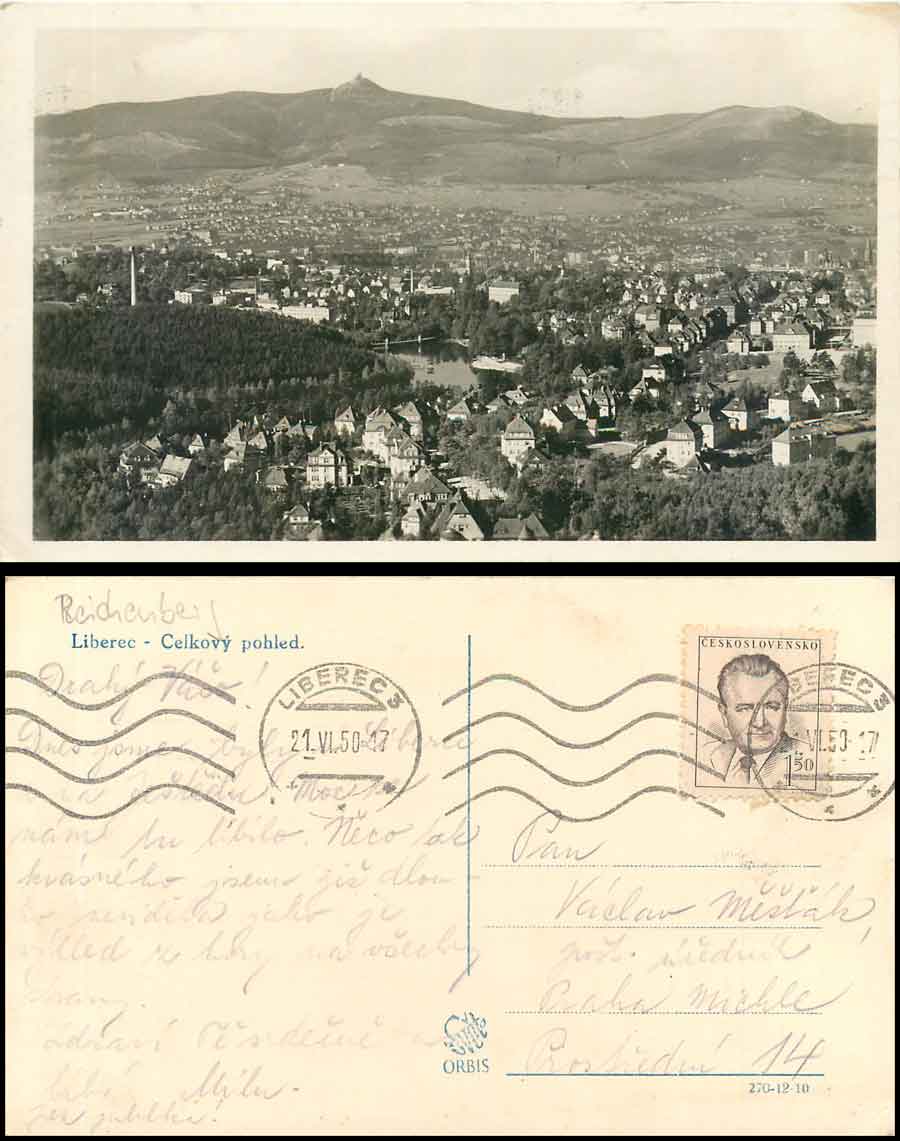 Reichenberg
Liberec - Celkový pohled.
Drahý
Dnes jsme byly v Liberci
a na Ještědu. Moc se
nám tu líbilo. Něco tak
krásného jsem již dlou
ho neviděla jako je
výhled z hory na všechny
strany.
Zdraví Tě srdečně a
líbá Mílu.
LIBEREC 3
21.VI.50-17
ČESKOSLOVENSKO
1.50
BEREC 3
VI.50-17
Pan
Václav Měšťák,
pošt. úředník
Praha Michle
Prostřední 14
ORBIS
270-12-10